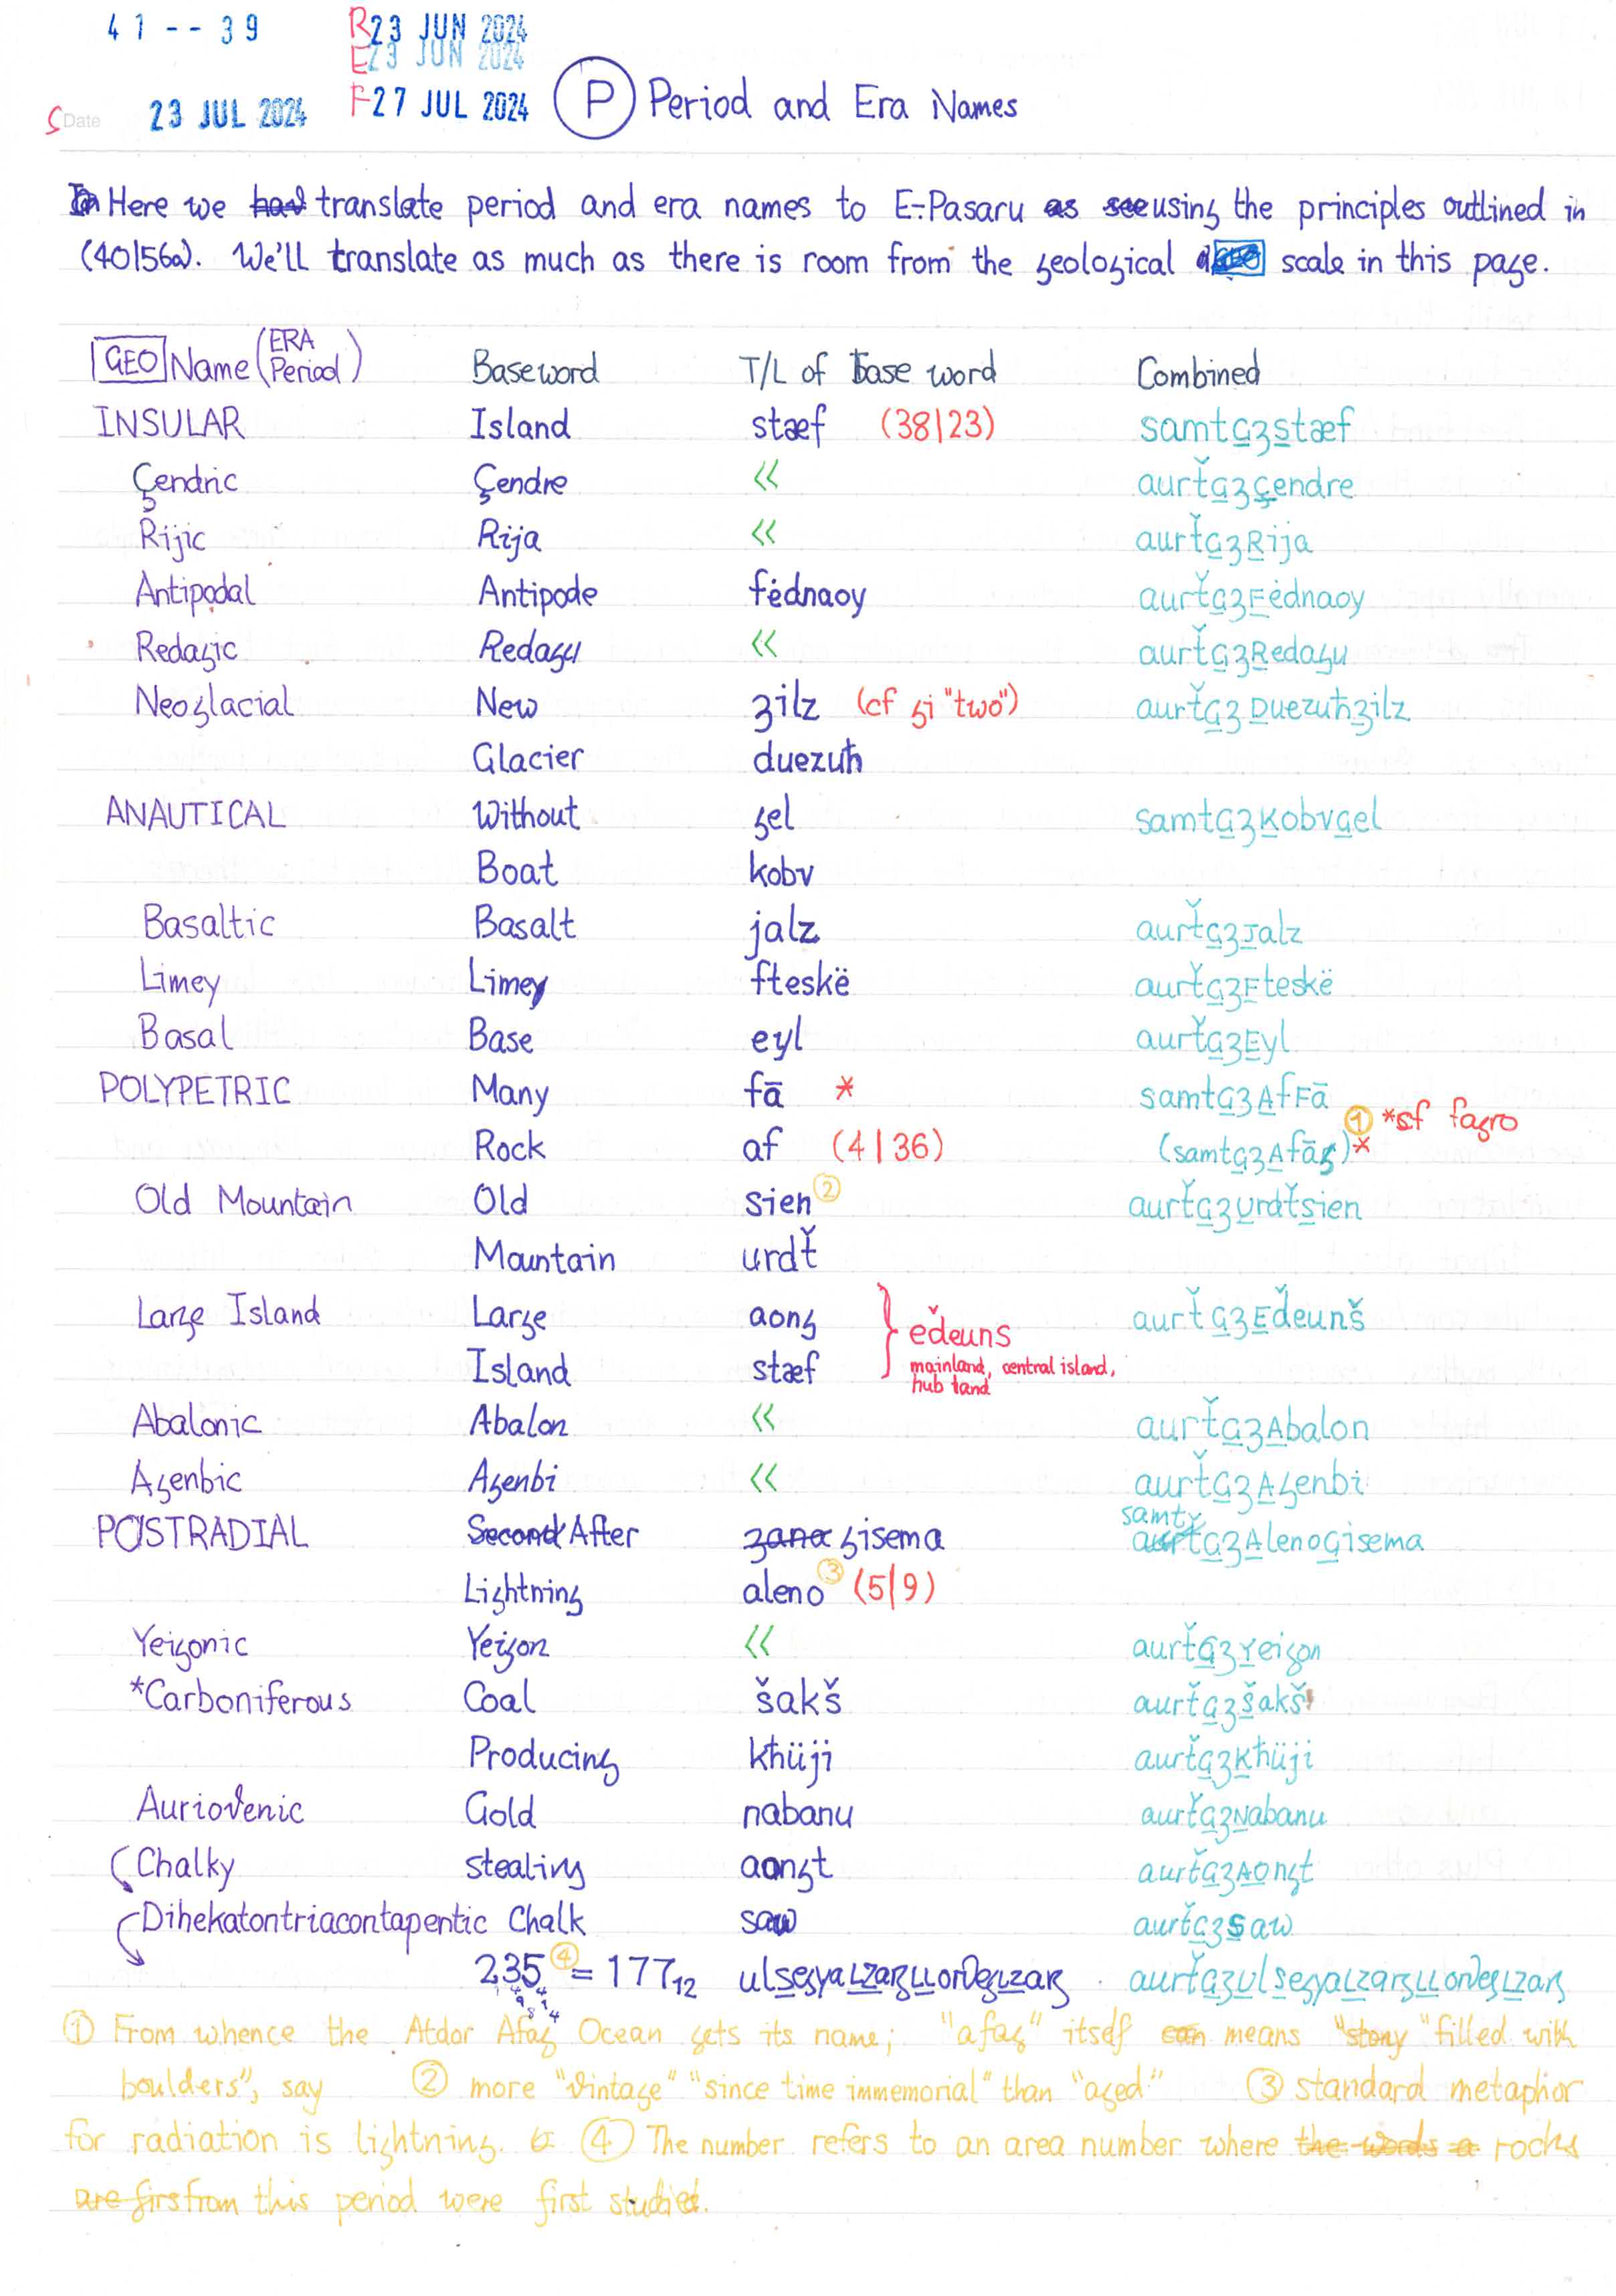 41--39
R 23 JUN 2024
E 23 JUN 2024
S Date 23 JUL 2024 F 27 JUL 2024 Ⓟ Period and Era Names
Here we translate period and era names to E-Pasaru using the principles outlined in
(40|56a). We'll translate as much as there is room from the geological scale in this page.
GEO Name (ERA Period) Baseword T/L of base word Combined
INSULAR Island stæf (38|23) samtGʒstæf
Çendric Çendre << aurťGʒçendre
Rijic Rija << aurťGʒRija
Antipodal Antipode fėdnaoy aurťGʒFėdnaoy
Redagic Redagu << aurťGʒRedagu
Neoglacial New ʒilz (cf gi "two") aurťGʒDuezuħʒilz
Glacier duezuħ
ANAUTICAL Without gel samtGʒKobvGel
Boat kobv
Basaltic Basalt jalz aurťGʒJalz
Limey Limey fteskë aurťGʒFteskë
Basal Base eyl aurťGʒEyl
POLYPETRIC Many fā * samtGʒAfFā
① *cf fagro
Rock af (4|36) (samtGʒAfāg)*
Old Mountain Old sien② aurťGʒUrdťsien
Mountain urdť
Large Island Large aong } eďeuns aurťGʒEďeunš
Island stæf mainland, central island,
hub land
Abalonic Abalon << aurťGʒAbalon
Agenbic Agenbi << aurťGʒAgenbi
POSTRADIAL Second After ʒana gisema samtGʒAlenoGisema
Lightning aleno③ (5|9)
Yeigonic Yeigon << aurťGʒYeigon
*Carboniferous Coal šakš aurťGʒšakš
Producing kħüji aurťGʒKħüji
Auriovenic Gold nabanu aurťGʒNabanu
Chalky stealing aongt aurťGʒAongt
Dihekatontriacontapentic Chalk saw aurťGʒsaw
235④ = 177₁₂
① From whence the Atdor Afag Ocean gets its name; "afag" itself can means "stony "filled with
boulders", say ② more "vintage" "since time immemorial" than "aged" ③ standard metaphor
for radiation is lightning. ④ The number refers to an area number where the words a rocks
are firs from this period were first studied.